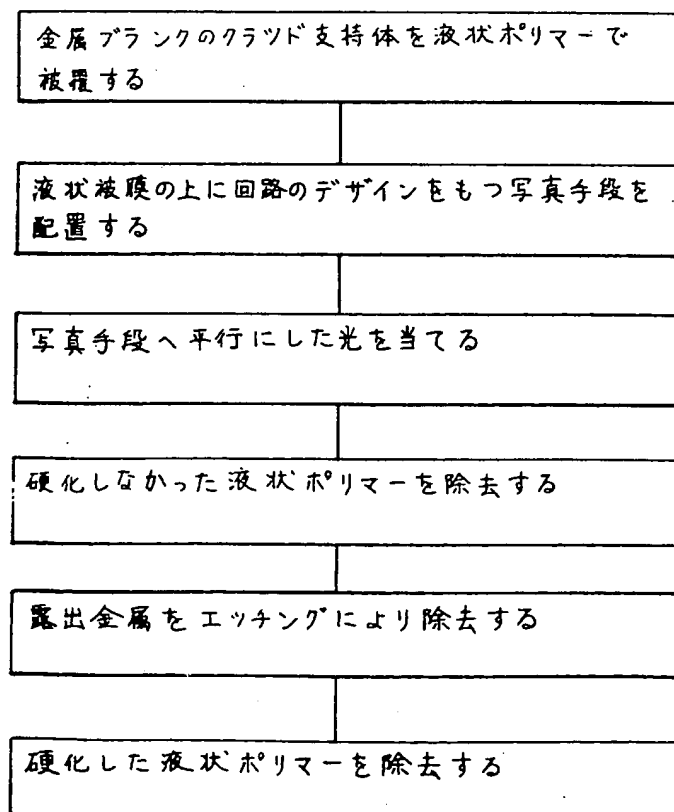 金属ブランクのクラツド支持体を液状ポリマーで
被覆する
液状被膜の上に回路のデザインをもつ写真手段を
配置する
写真手段へ平行にした光を当てる
硬化しなかった液状ポリマーを除去する
露出金属をエッチングにより除去する
硬化した液状ポリマーを除去する